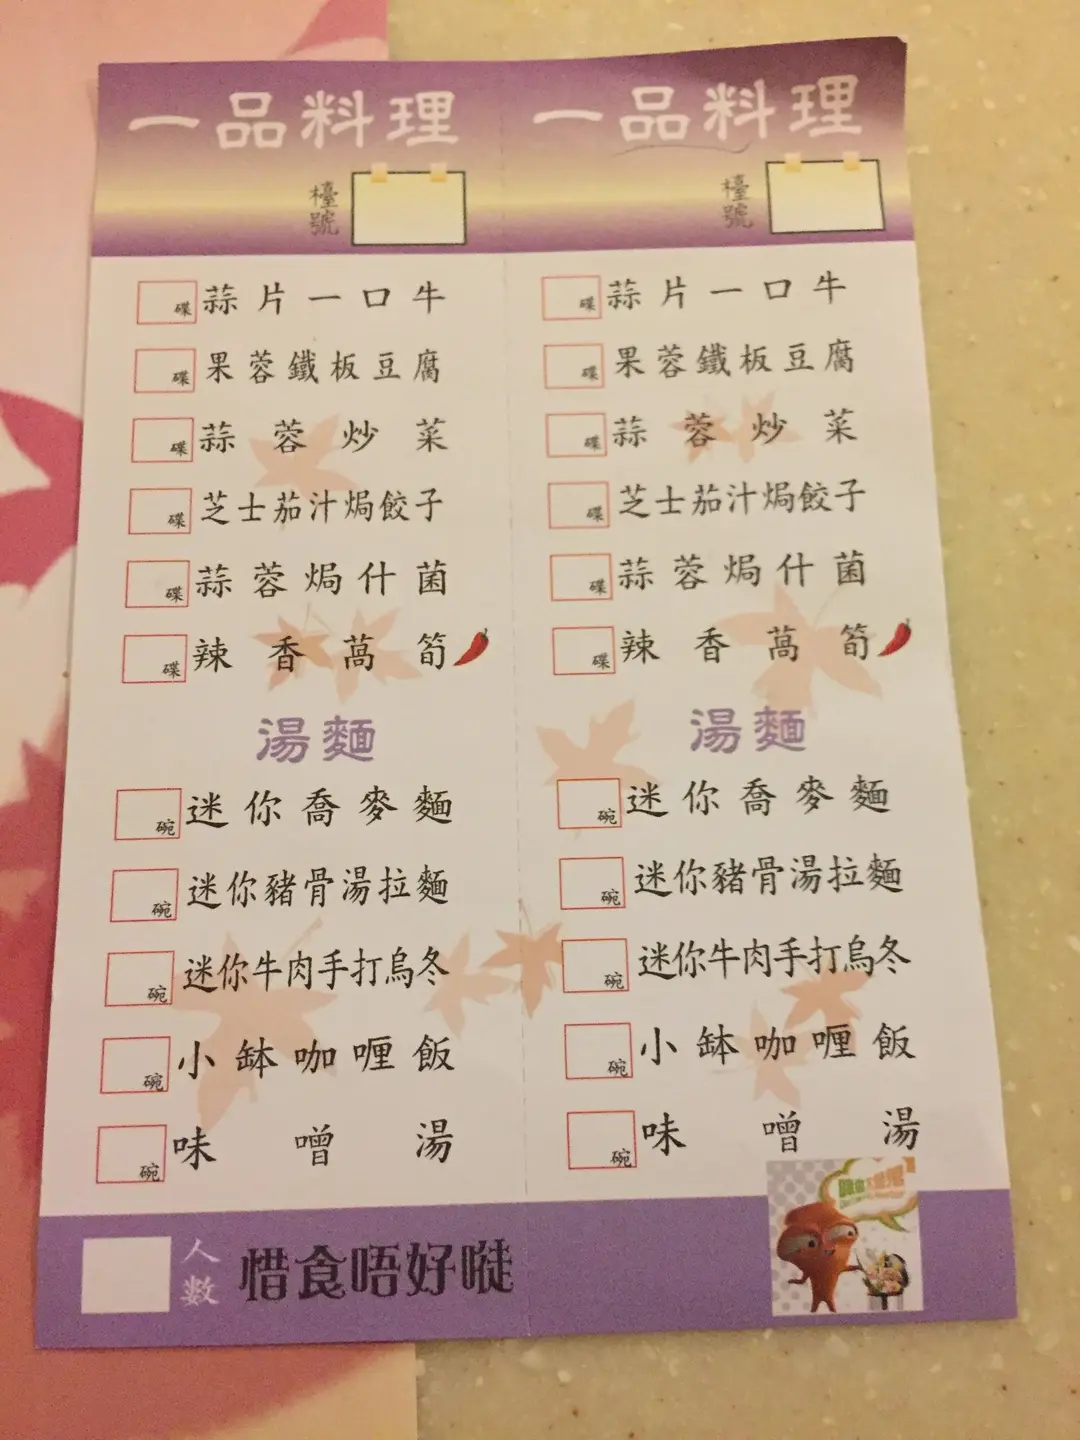 一品料理
檯號
碟 蒜片一口牛
碟 果蓉鐵板豆腐
碟 蒜蓉炒菜
碟 芝士茄汁焗餃子
碟 蒜蓉焗什菌
碟 辣香萵筍
湯麵
碗 迷你喬麥麵
碗 迷你豬骨湯拉麵
碗 迷你牛肉手打烏冬
碗 小缽咖喱飯
碗 味噌湯
人數
惜食唔好嘥
一品料理
檯號
碟 蒜片一口牛
碟 果蓉鐵板豆腐
碟 蒜蓉炒菜
碟 芝士茄汁焗餃子
碟 蒜蓉焗什菌
碟 辣香萵筍
湯麵
碗 迷你喬麥麵
碗 迷你豬骨湯拉麵
碗 迷你牛肉手打烏冬
碗 小缽咖喱飯
碗 味噌湯